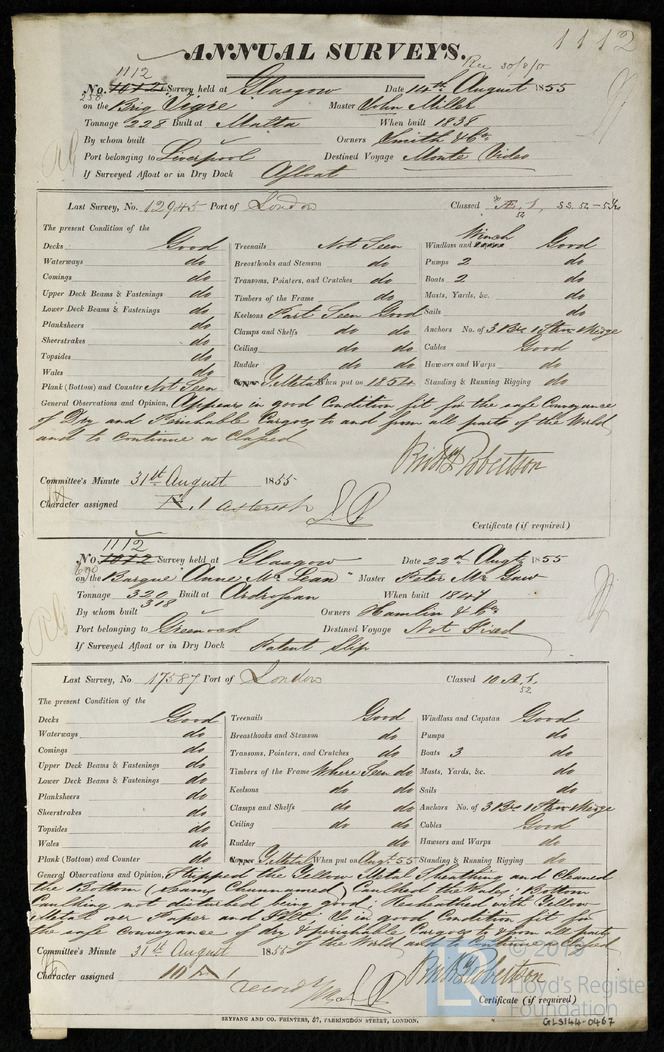 1112
ANNUAL SURVEYS.
Rec 30/8/55
1112
No. 1012 Survey held at Glasgow Date 14th August 1855
on the Brig Tigre Master John Miller
Tonnage 228 Built at Malta When built 1838
By whom built Owners Smith & Co.
Port belonging to Liverpool Destined Voyage Monte Video
If Surveyed Afloat or in Dry Dock Afloat
Last Survey, No. 12945 Port of London Classed Æ 1 SS. 52 - 5
52
The present Condition of the
Decks Good
Waterways do
Comings do
Upper Deck Beams & Fastenings do
Lower Deck Beams & Fastenings do
Planksheers do
Sheerstrakes do
Topsides do
Wales do
Plank (Bottom) and Counter Not Seen
Treenails Not Seen
Breasthooks and Stemson do
Transoms, Pointers, and Crutches do
Timbers of the Frame do
Keelsons Part Seen Good
Clamps and Shelfs do do
Ceiling do do
Rudder do
Copper Y. Metal When put on 1854
Winch
Windlass and Capstan Good
Pumps 2 do
Boats 2 do
Masts, Yards, &c. do
Sails do
Anchors No. of 3 Br 1 Strm 1 Kedge
Cables Good
Hawsers and Warps do
Standing & Running Rigging do
General Observations and Opinion, Appears in good Condition fit for the safe Conveyance
of Dry and Perishable Cargoes to and from all parts of the World
and to Continue as Classed
Robertson
Committee's Minute 31st August 1855
Character assigned Æ 1 asterisk
Certificate (if required)
1112
No. 1012 Survey held at Glasgow Date 22nd Augt 1855
on the Barque "Anne McLean" Master Peter McGaw
Tonnage 320 Built at Ardrossan When built 1847
318
By whom built Owners Hamlin & Co
Port belonging to Greenock Destined Voyage Not Fixed
If Surveyed Afloat or in Dry Dock Patent Slip
Last Survey, No. 17587 Port of London Classed 10 A 1.
52
The present Condition of the
Decks Good
Waterways do
Comings do
Upper Deck Beams & Fastenings do
Lower Deck Beams & Fastenings do
Planksheers do
Sheerstrakes do
Topsides do
Wales do
Plank (Bottom) and Counter do
Treenails Good
Breasthooks and Stemson do
Transoms, Pointers, and Crutches do
Timbers of the Frame Where Seen do
Keelsons do do
Clamps and Shelfs do do
Ceiling do do
Rudder do
Copper Y. Metal When put on Augt. 55
Windlass and Capstan Good
Pumps do
Boats 3 do
Masts, Yards, &c. do
Sails do
Anchors No. of 3 Br 1 Strm 1 Kedge
Cables Good
Hawsers and Warps do
Standing & Running Rigging do
General Observations and Opinion, Stripped the Yellow Metal Sheathing and Cleaned
the Bottom Caulked the Wales, Bottom
Caulking not disturbed being good; Resheathed with Yellow
Metal over Paper and Felt; Is in good Condition fit for
the safe conveyance of dry & perishable Cargoes to & from all parts
of the World and to Continue as Classed
Committee's Minute 31st August 1855
Robertson
Character assigned 10 A 1
record
Certificate (if required)
SEYFANG AND CO. PRINTERS, 57, FARRINGDON STREET, LONDON.
LR
© 2019
Lloyd's Register
Foundation
GLS144-0467